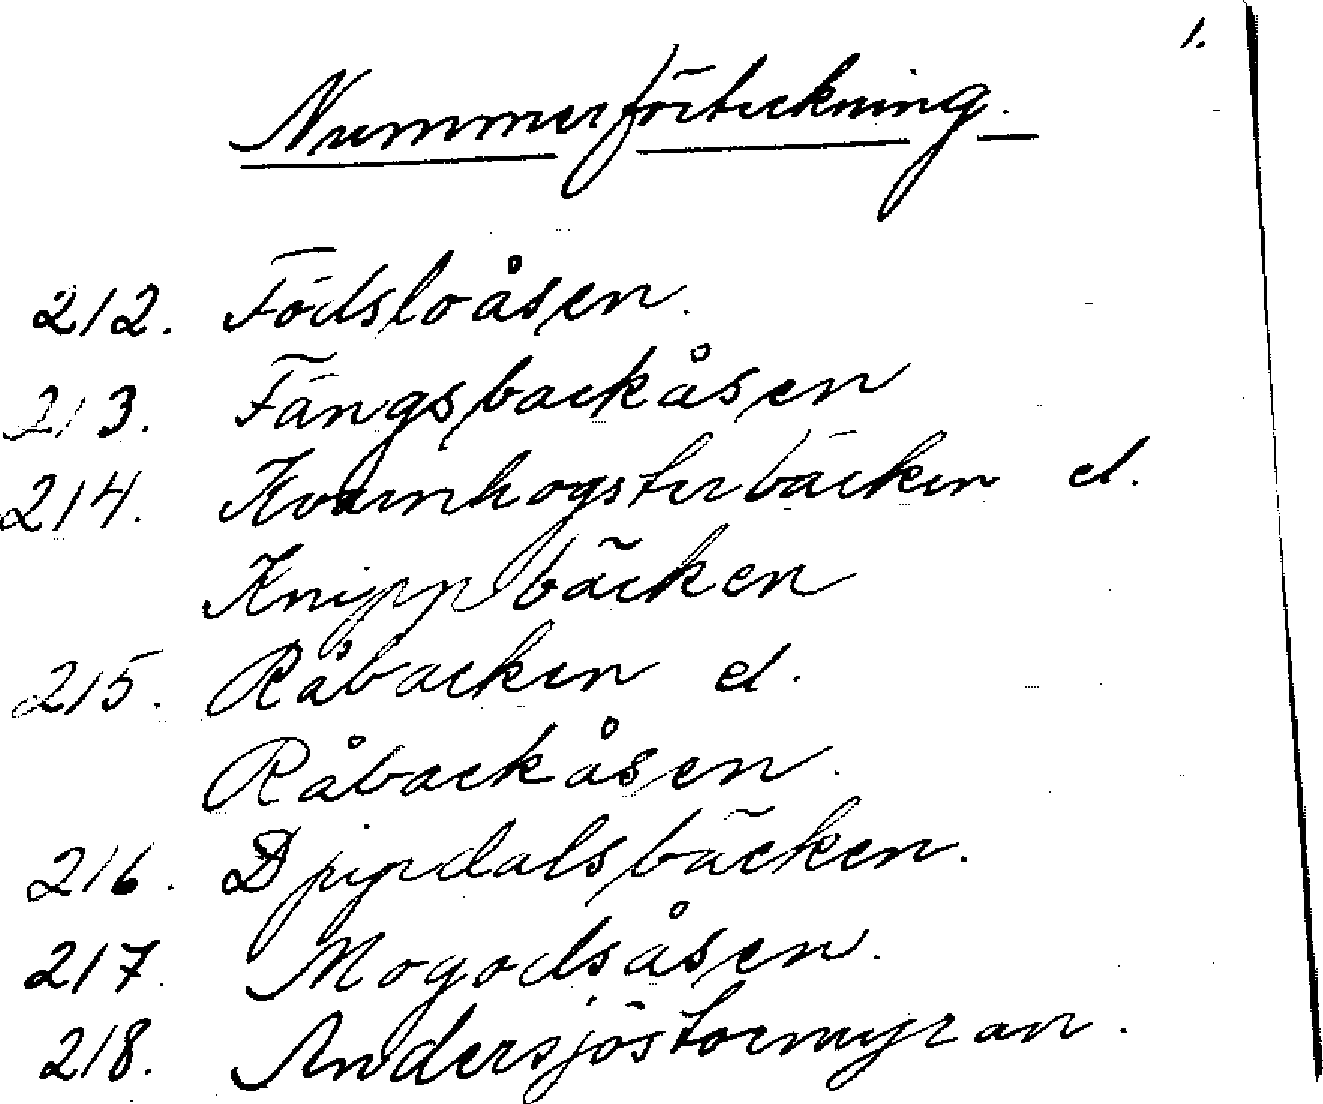 1.
Nummerförteckning.
212. Födsloåsen.
213. Fångsbackåsen
214. Kvarnhogsterbäcken el.
Knippbäcken
215. Råbacken el.
Råbackåsen.
216. Djupdalsbäcken.
217. Mogodsåsen.
218. Andersjöstormyran.